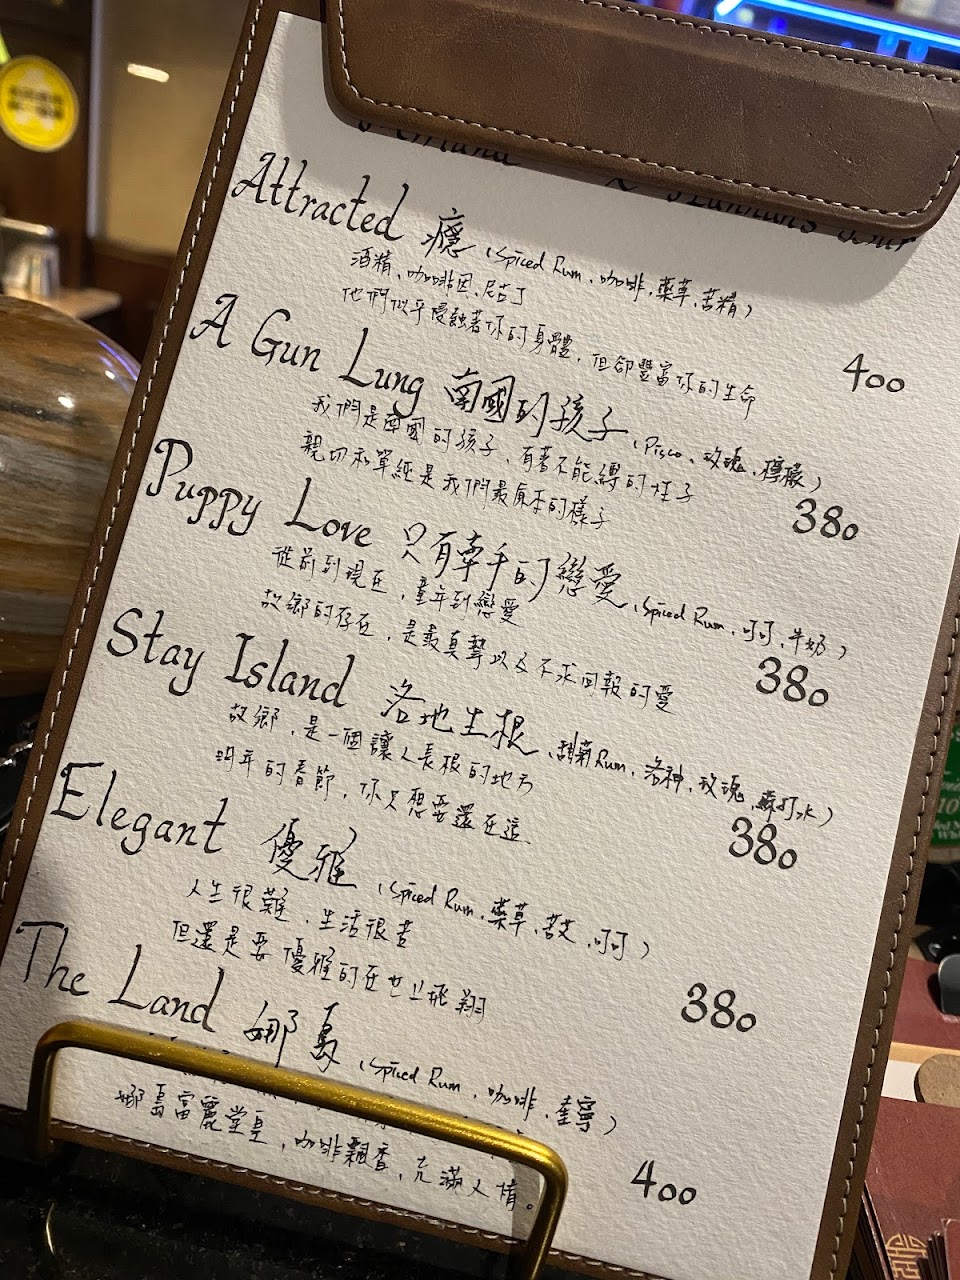 Attracted 癮 (Spiced Rum、咖啡、藥草、苦精)
酒精、咖啡因、尼古丁
他們似乎侵蝕著你的身體，但卻豐富你的生命
400
A Gun Lung 南國的孩子 (Pisco、玫瑰、檸檬)
我們是南國的孩子，有著不能縛的性子
親切和單純是我們最原本的樣子
380
Puppy Love 只有牽手的戀愛 (Spiced Rum、可可、牛奶)
從前到現在，童年到戀愛
故鄉的存在，是最真摯以及不求回報的愛
380
Stay Island 落地生根 (甜菊Rum、洛神、玫瑰、蘇打水)
故鄉，是一個讓人長根的地方
明年的春節，你只想要還在這
380
Elegant 優雅 (Spiced Rum、藥草、苦艾、可可)
人生很難，生活很苦
但還是要優雅的在世上飛翔
380
The Land 娜島 (Spiced Rum、咖啡、奎寧)
娜島富麗堂皇，咖啡飄香，充滿人情。
400